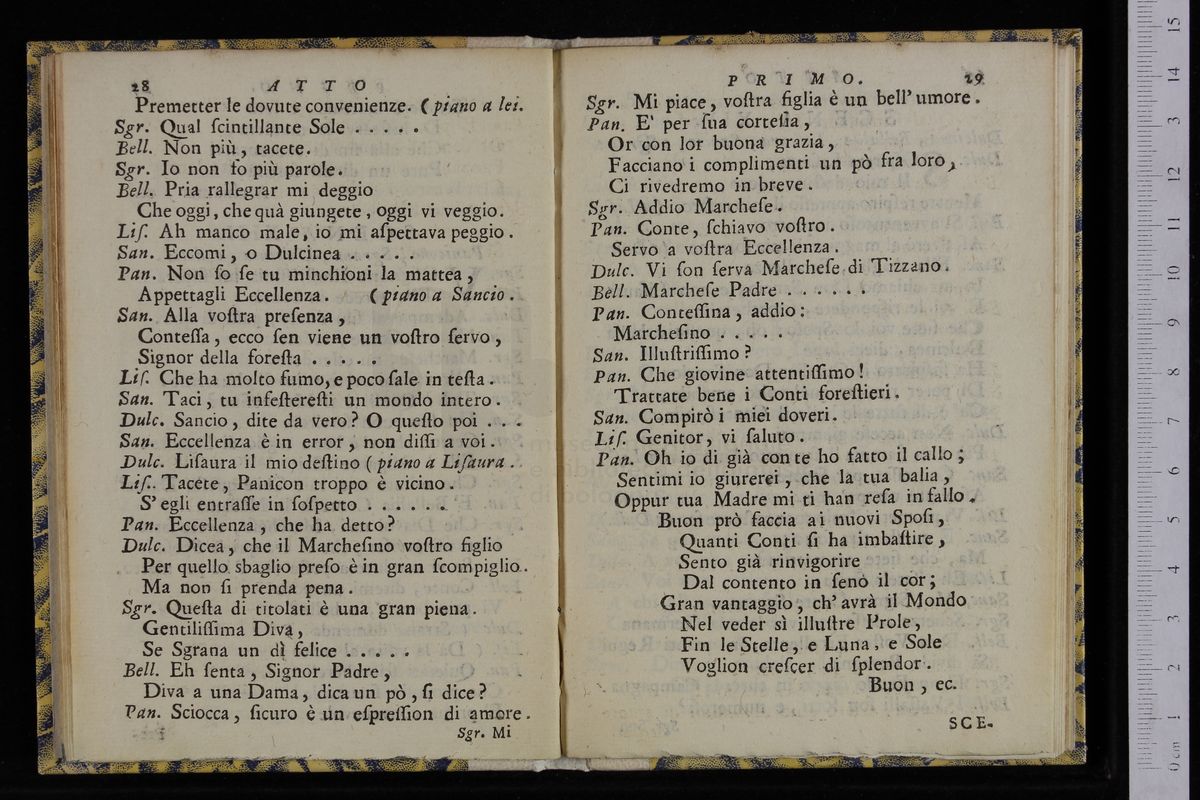 28 ATTO
Premetter le dovute convenienze. (piano a lei.
Sgr. Qual ſcintillante Sole . . . . .
Bell. Non più, tacete.
Sgr. Io non fo più parole.
Bell. Pria rallegrar mi deggio
Che oggi, che quà giungete, oggi vi veggio.
Liſ. Ah manco male, io mi aſpettava peggio.
San. Eccomi, o Dulcinea . . . . .
Pan. Non ſo ſe tu minchioni la mattea,
Appettagli Eccellenza. (piano a Sancio.
San. Alla voſtra preſenza,
Conteſſa, ecco ſen viene un voſtro ſervo,
Signor della foreſta . . . . .
Liſ. Che ha molto fumo, e poco ſale in teſta.
San. Taci, tu infeſtereſti un mondo intero.
Dulc. Sancio, dite da vero? O queſto poi . . .
San. Eccellenza è in error, non diſſi a voi.
Dulc. Liſaura il mio deſtino (piano a Liſaura.
Liſ. Tacete, Panicon troppo è vicino.
S'egli entraſſe in ſoſpetto . . . . . .
Pan. Eccellenza, che ha detto?
Dulc. Dicea, che il Marcheſino voſtro figlio
Per quello sbaglio preſo è in gran ſcompiglio.
Ma non ſi prenda pena.
Sgr. Queſta di titolati è una gran piena.
Gentiliſſima Diva,
Se Sgrana un dì felice . . . . .
Bell. Eh ſenta, Signor Padre,
Diva a una Dama, dica un pò, ſi dice?
Pan. Sciocca, ſicuro è un eſpreſſion di amore.
Sgr. Mi
PRIMO. 29
Sgr. Mi piace, voſtra figlia è un bell'umore.
Pan. E' per ſua corteſia,
Or con lor buona grazia,
Facciano i complimenti un pò fra loro,
Ci rivedremo in breve.
Sgr. Addio Marcheſe.
Pan. Conte, ſchiavo voſtro.
Servo a voſtra Eccellenza.
Dulc. Vi ſon ſerva Marcheſe di Tizzano.
Bell. Marcheſe Padre . . . . . .
Pan. Conteſſina, addio:
Marcheſino . . . . .
San. Illuſtriſſimo?
Pan. Che giovine attentiſſimo!
Trattate bene i Conti foreſtieri.
San. Compirò i miei doveri.
Liſ. Genitor, vi ſaluto.
Pan. Oh io di già con te ho fatto il callo;
Sentimi io giurerei, che la tua balia,
Oppur tua Madre mi ti han reſa in fallo.
Buon prò faccia ai nuovi Spoſi,
Quanti Conti ſi ha imbaſtire,
Sento già rinvigorire
Dal contento in ſeno il cor;
Gran vantaggio, ch'avrà il Mondo
Nel veder sì illuſtre Prole,
Fin le Stelle, e Luna, e Sole
Voglion creſcer di ſplendor.
Buon, ec.
SCE-
0 cm 1 2 3 4 5 6 7 8 9 10 11 12 13 14 15